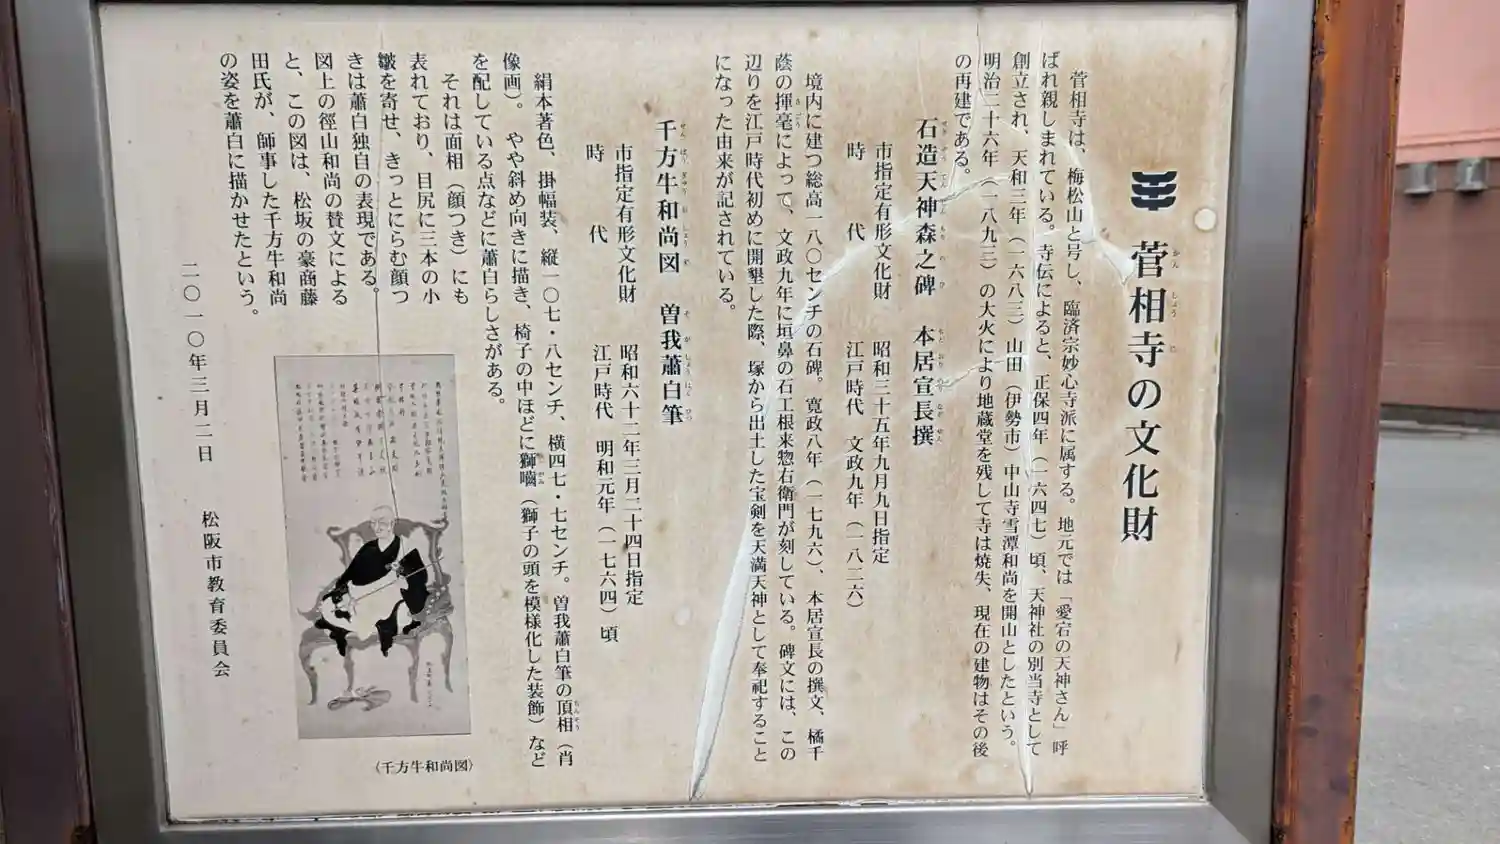 菅相寺の文化財
かんしょうじ
菅相寺は、梅松山と号し、臨済宗妙心寺派に属する。地元では「愛宕の天神さん」呼
ばれ親しまれている。寺伝によると、正保四年（一六四七）頃、天神社の別当寺として
創立され、天和三年（一六八三）山田（伊勢市）中山寺雪潭和尚を開山としたという。
明治二十六年（一八九三）の大火により地蔵堂を残して寺は焼失、現在の建物はその後
の再建である。
石造天神森之碑　本居宣長撰
市指定有形文化財　昭和三十五年九月九日指定
時代　江戸時代　文政九年（一八二六）
境内に建つ総高一八〇センチの石碑。寛政八年（一七九六）、本居宣長の撰文、橘千
蔭の揮毫によって、文政九年に垣鼻の石工根来惣右衛門が刻している。碑文には、この
辺りを江戸時代初めに開墾した際、塚から出土した宝剣を天満天神として奉祀すること
になった由来が記されている。
千方牛和尚図　曽我蕭白筆
市指定有形文化財　昭和六十二年三月二十四日指定
時代　江戸時代　明和元年（一七六四）頃
絹本著色、掛幅装、縦一〇七・八センチ、横四七・七センチ。曽我蕭白筆の頂相（肖
像画）。やや斜め向きに描き、椅子の中ほどに獅嚙（獅子の頭を模様化した装飾）など
を配している点などに蕭白らしさがある。
それは面相（顔つき）にも
表れており、目尻に三本の小
皺を寄せ、きっとにらむ顔つ
きは蕭白独自の表現である。
図上の徑山和尚の賛文による
と、この図は、松坂の豪商藤
田氏が、師事した千方牛和尚
の姿を蕭白に描かせたという。
（千方牛和尚図）
二〇一〇年三月二日　松阪市教育委員会